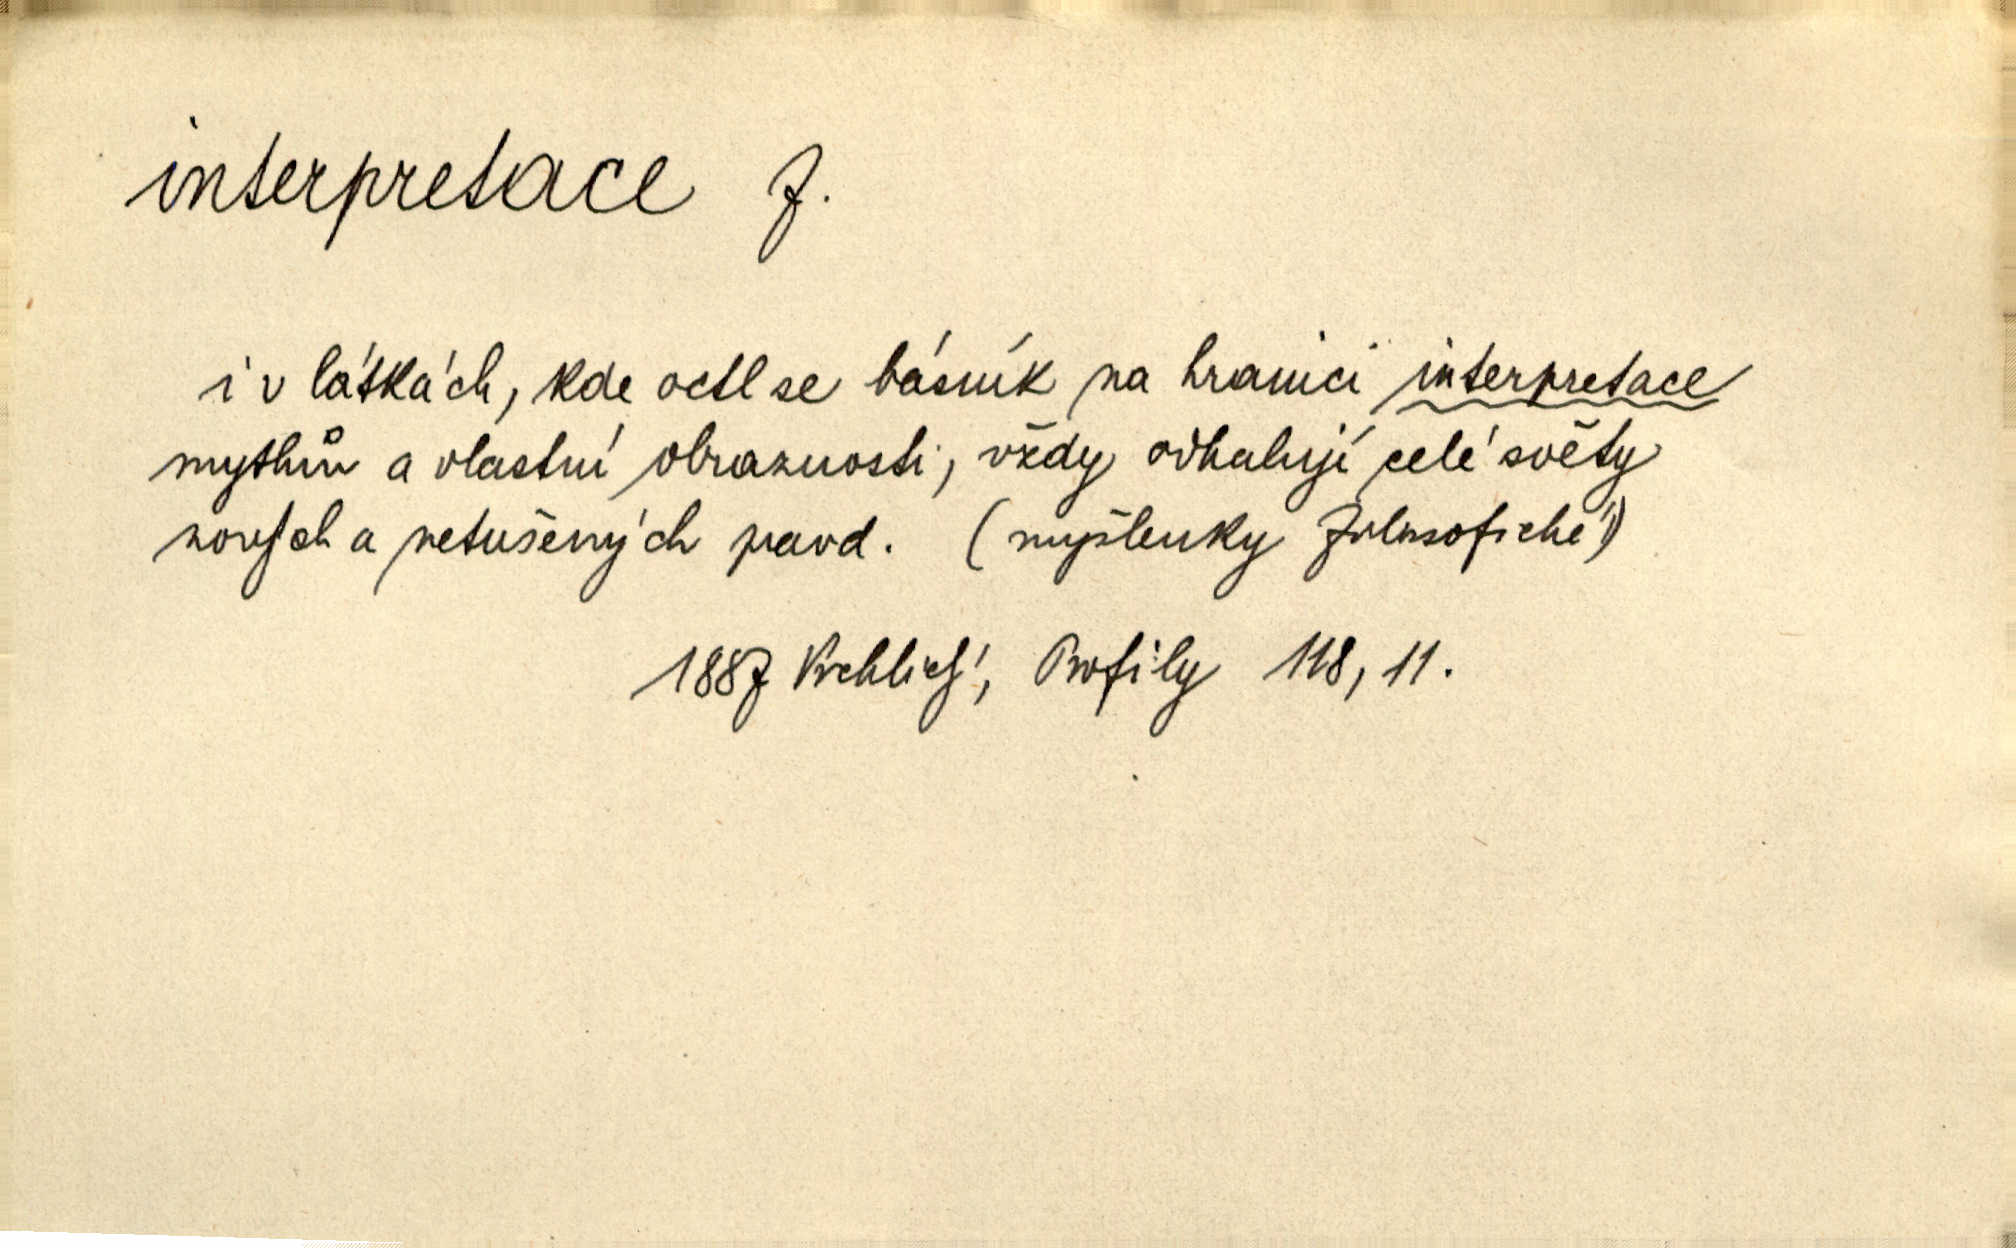 interpretace f.
i v látkách, kde octl se básník na hranici interpretace
mythův a vlastní obraznosti, vždy odhalují celé světy
nových a netušených pravd. (myšlenky filosofické)
1887 Vrchlický, Profily 118, 11.